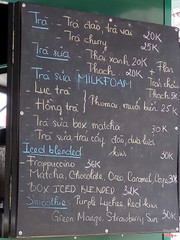 Trà - Trà đào, trà vải 20K
- Trà chung 25K
Trà sữa - Thái xanh 20K + Flan
Thạch 20K Trái
Trà sữa MILKFOAM Thạch 5K
- Lục trà
- Hồng trà Phomai muối biển 25K
- Trà sữa box matcha 30K
- Trà sữa trái cây: dâu, dưa lưới
Iced blended kiwi 50K
Frappuccino 35K
Matcha, Chocolate, Oreo Caramel, 30K
BOX ICED BLENDED 34K
Smoothie: Purple Lychee, Red kiwi
Green Mango, Strawberry Sun 50K